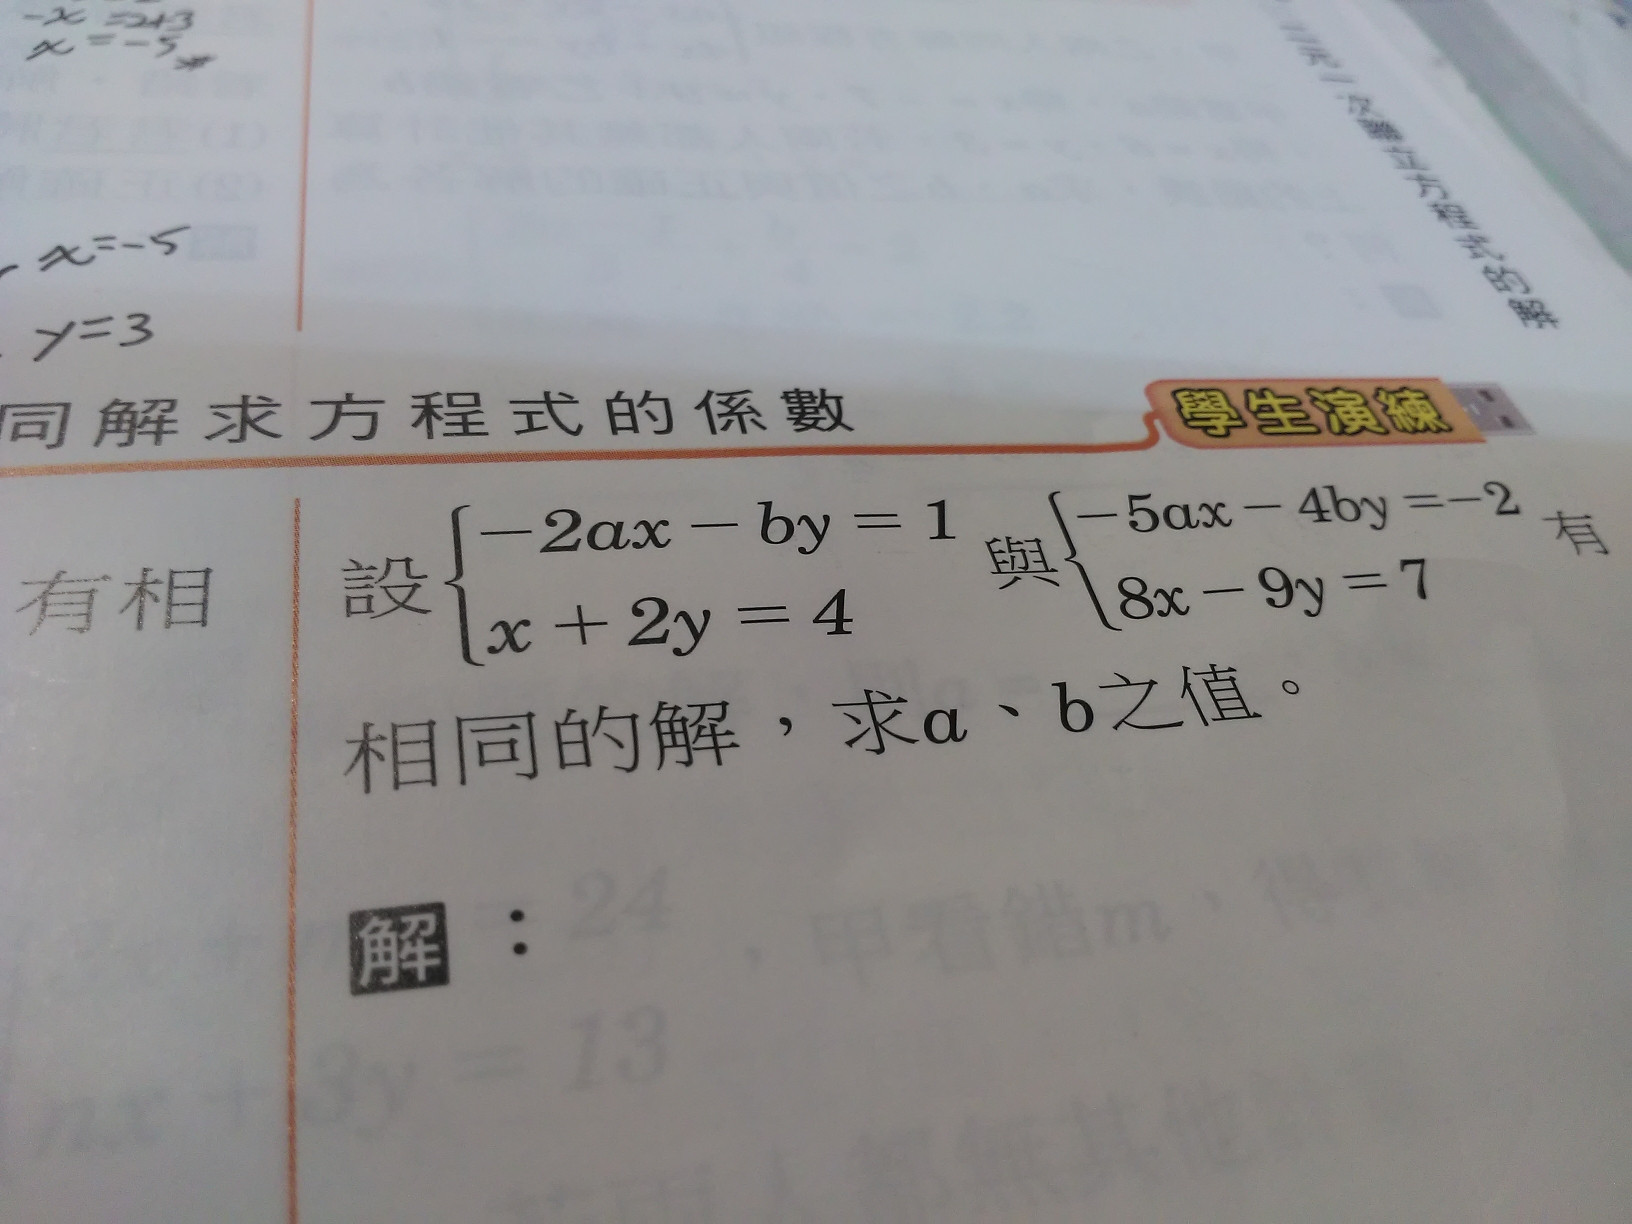 -x=2+3
x=-5*
x=-5
y=3
二元一次聯立方程式的解
同解求方程式的係數
學生演練
有相
設{-2ax-by=1 與{-5ax-4by=-2 有
x+2y=4 8x-9y=7
相同的解,求a、b之值。
解: